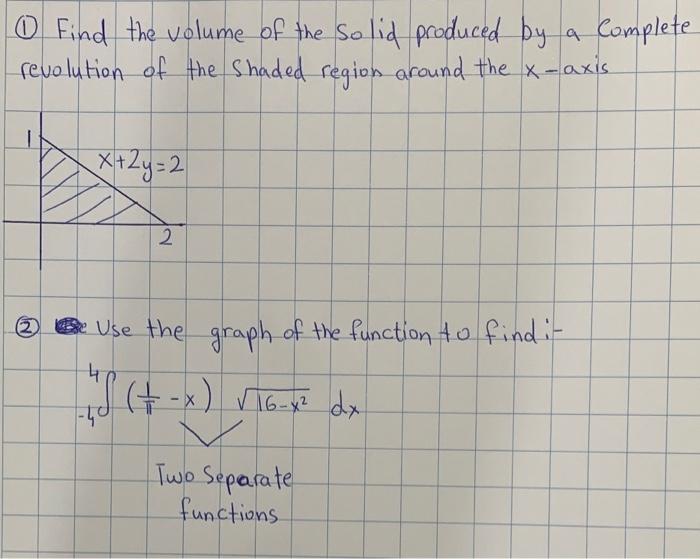 ① Find the volume of the solid produced by a Complete
revolution of the shaded region around the x-axis
1
x+2y=2
2
② Use the graph of the function to find:-
4
∫ (1/π - x) √16-x² dx
-4
Two Separate
functions